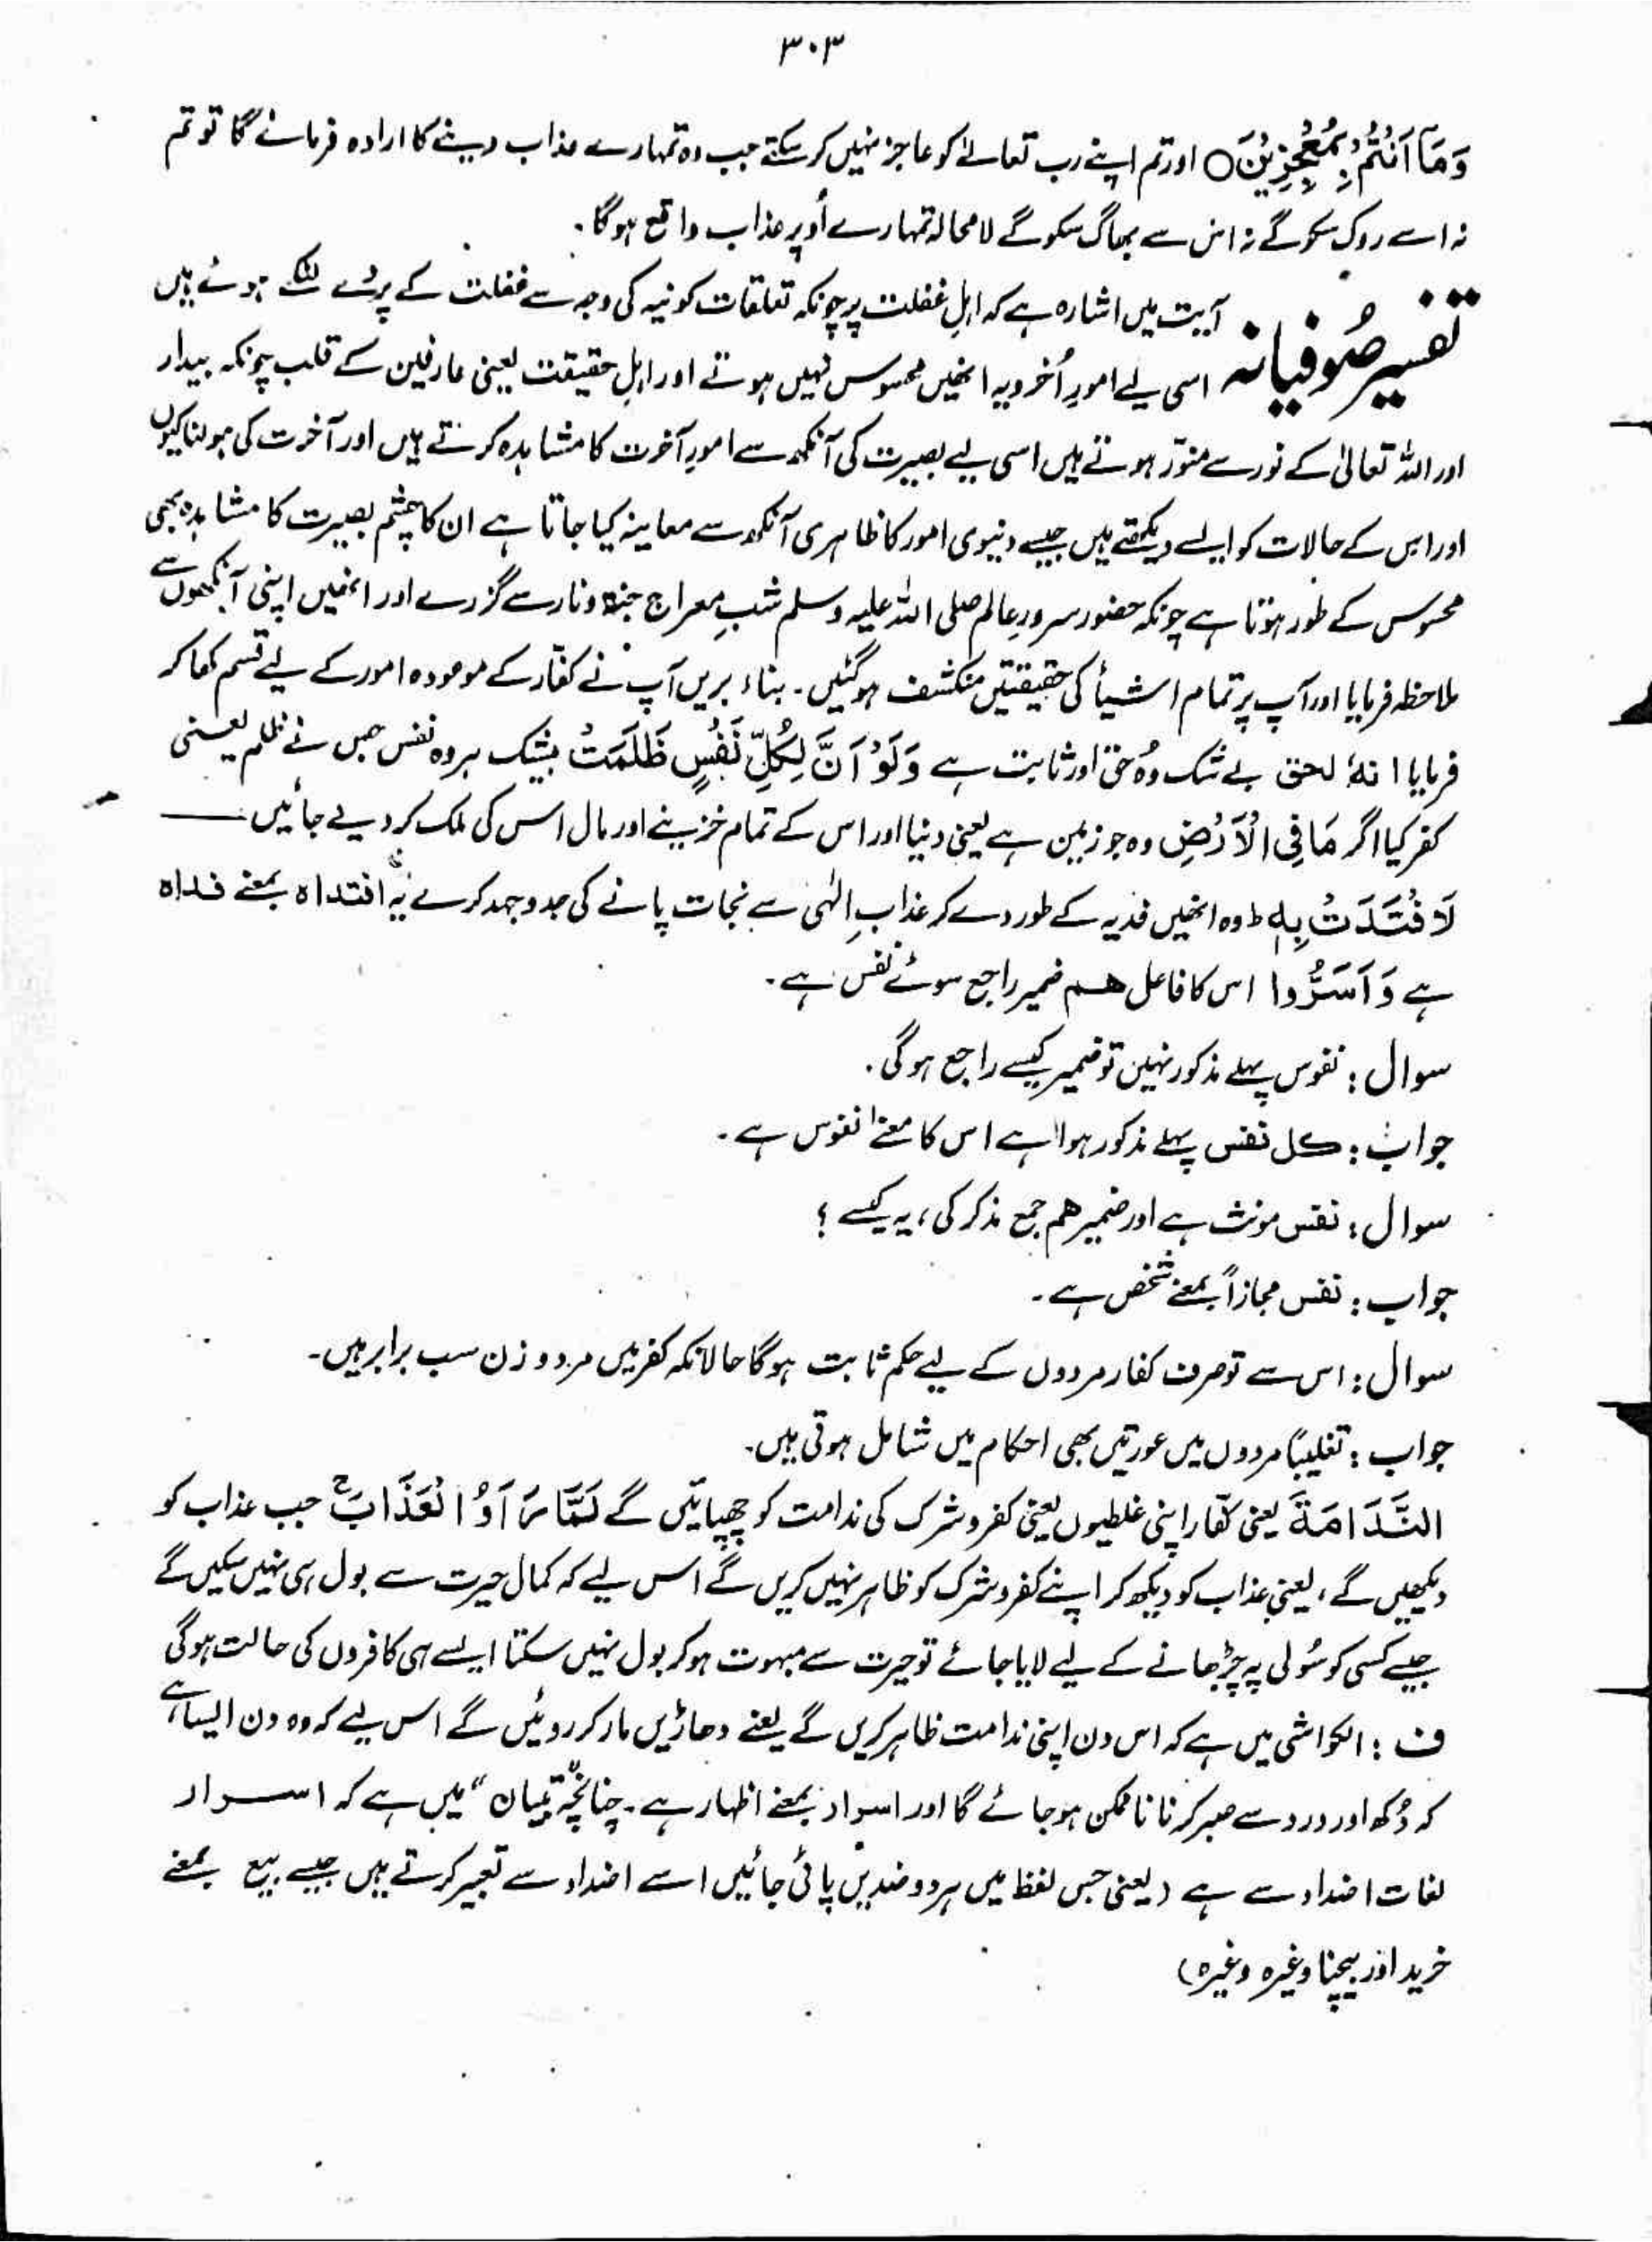 ۳۰۳
وَمَآ اَنْتُمْ بِمُعْجِزِيْنَ ○ اور تم اپنے رب تعالےٰ کو عاجز نہیں کر سکتے جب وہ تمہارے عذاب دینے کا ارادہ فرمائے گا تو تم
نہ اسے روک سکو گے نہ اس سے بھاگ سکو گے لا محالہ تمہارے اُوپر عذاب واقع ہوگا۔
تفسیر صُوفیانہ آیت میں اشارہ ہے کہ اہلِ غفلت پر چونکہ تعلقات کونیہ کی وجہ سے غفلت کے پردے لٹکے ہوئے ہیں
اسی لیے امورِ اُخرویہ انھیں محسوس نہیں ہوتے اور اہلِ حقیقت یعنی عارفین کے قلب چونکہ بیدار
اور اللہ تعالیٰ کے نور سے منوّر ہوتے ہیں اسی لیے بصیرت کی آنکھ سے امورِ آخرت کا مشاہدہ کرتے ہیں اور آخرت کی ہولناکیوں
اور اس کے حالات کو ایسے دیکھتے ہیں جیسے دنیوی امور کا ظاہری آنکھ سے معاینہ کیا جاتا ہے ان کا چشمِ بصیرت کا مشاہدہ بھی
محسوس کے طور ہوتا ہے چونکہ حضور سرورِ عالم صلی اللہ علیہ وسلم شبِ معراج جنۃ و نار سے گزرے اور انھیں اپنی آنکھوں سے
ملاحظہ فرمایا اور آپ پر تمام اشیأ کی حقیقتیں منکشف ہو گئیں۔ بناء بریں آپ نے کفّار کے موعودہ امور کے لیے قسم کھا کر
فرمایا انہٗ لحق بے شک وُہ حق اور ثابت ہے وَلَوْ اَنَّ لِكُلِّ نَفْسٍ ظَلَمَتْ بیشک ہر وہ نفس جس نے ظلم یعنی
کفر کیا اگر مَا فِی الْاَرْضِ وہ جو زمین ہے یعنی دنیا اور اس کے تمام خزینے اور مال اس کی ملک کر دیے جائیں ——
لَا فْتَدَتْ بِهٖ ط وہ انھیں فدیہ کے طور دے کر عذابِ الٰہی سے نجات پانے کی جدوجہد کرے یہ افتداہ بمعنے فداہ
ہے وَ اَسَرُّوا اس کا فاعل ھم ضمیر راجع سوئے نفس ہے۔
سوال : نفوس پہلے مذکور نہیں تو ضمیر کیسے راجع ہوگی۔
جواب : کل نفس پہلے مذکور ہوا ہے اس کا معنےٰ نفوس ہے۔
سوال : نفس مونث ہے اور ضمیر ھم جمع مذکر کی، یہ کیسے ؟
جواب : نفس مجازاً بمعنے شخص ہے۔
سوال : اس سے تو صرف کفار مردوں کے لیے حکم ثابت ہوگا حالانکہ کفر میں مرد و زن سب برابر ہیں۔
جواب : تغلیباً مردوں میں عورتیں بھی احکام میں شامل ہوتی ہیں۔
النَّدَامَةَ یعنی کفّار اپنی غلطیوں یعنی کفر و شرک کی ندامت کو چھپائیں گے لَمَّا رَاَوُا الْعَذَابَ ج جب عذاب کو
دیکھیں گے، یعنی عذاب کو دیکھ کر اپنے کفر و شرک کو ظاہر نہیں کریں گے اس لیے کہ کمال حیرت سے بول ہی نہیں سکیں گے
جیسے کسی کو سُولی پہ چڑھانے کے لیے لایا جائے تو حیرت سے مبہوت ہو کر بول نہیں سکتا ایسے ہی کافروں کی حالت ہوگی
ف : الکواشی میں ہے کہ اس دن اپنی ندامت ظاہر کریں گے یعنے دھاڑیں مار کر روئیں گے اس لیے کہ وہ دن ایسا ہے
کہ دُکھ اور درد سے صبر کرنا ناممکن ہو جائے گا اور اسرار بمعنے اظہار ہے۔ چنانچہ "تبیان" میں ہے کہ اسرار
لغات اضداد سے ہے (یعنی جس لفظ میں ہر دو ضدیں پائی جائیں اسے اضداد سے تعبیر کرتے ہیں جیسے بیع بمعنے
خرید اور بیچنا وغیرہ وغیرہ)